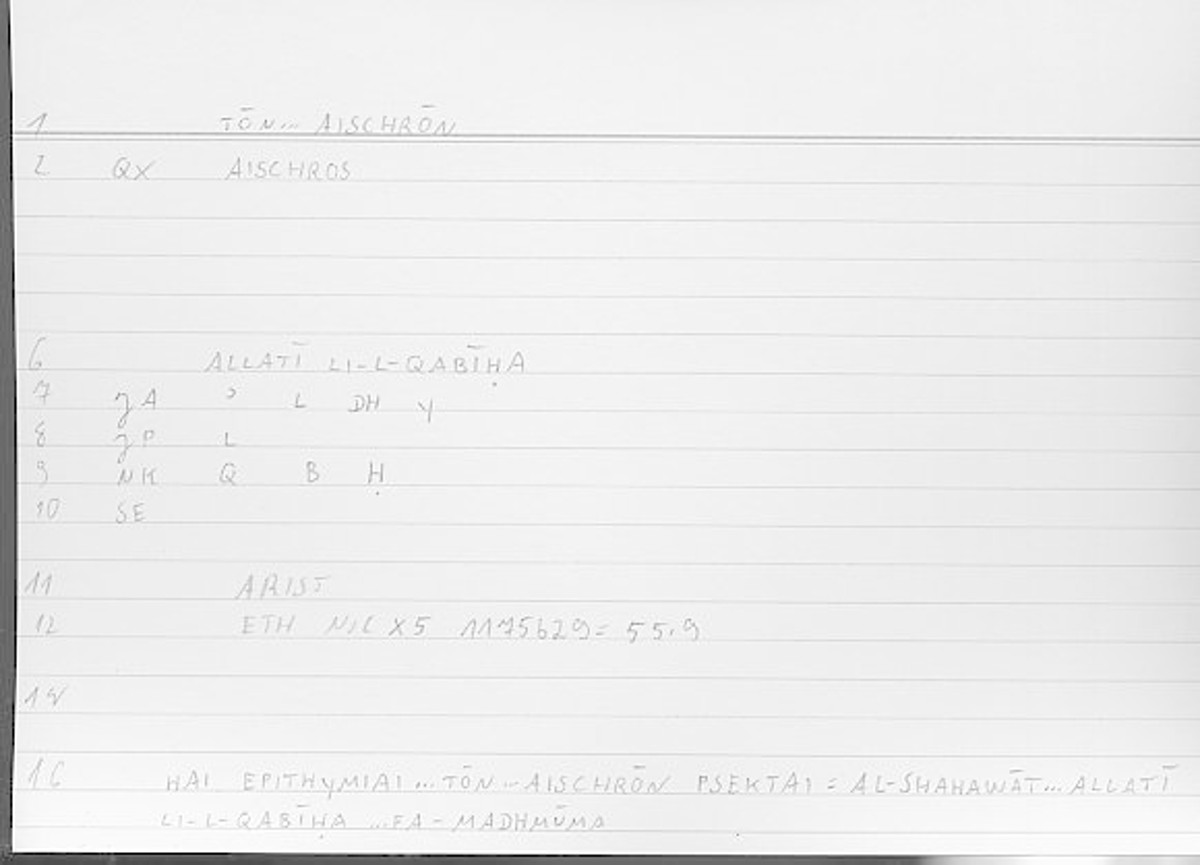 1 TŌN... AISCHRŌN
2 QX AISCHROS
6 ALLATĪ LI-L-QABĪḤA
7 ʒA ʾ L DH Y
8 ʒP L
9 NK Q B Ḥ
10 SE
11 ARIST
12 ETH NIC X5 1175b29= 55.9
14
16 HAI EPITHYMIAI... TŌN... AISCHRŌN PSEKTAI = AL-SHAHAWĀT... ALLATĪ
LI-L-QABĪḤA ...FA-MADHMŪMA